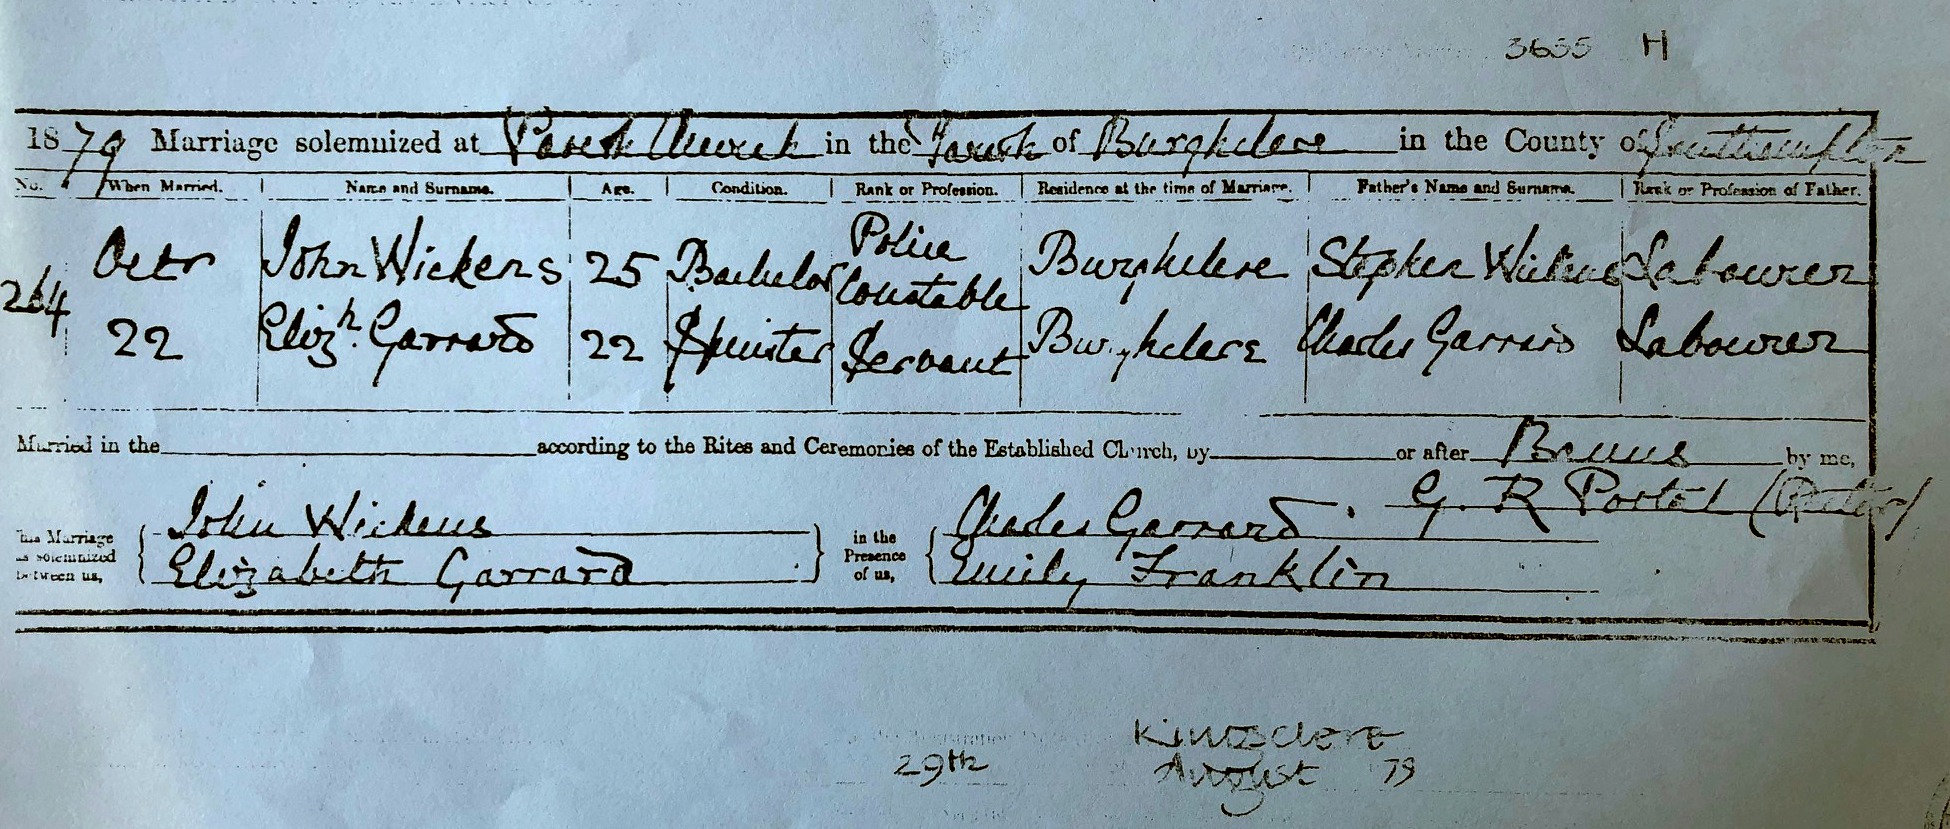 3655 H
1879 Marriage solemnized at Parish Church in the Parish of Burghclere in the County of Southampton
No. When Married. Name and Surname. Age. Condition. Rank or Profession. Residence at the time of Marriage. Father's Name and Surname. Rank or Profession of Father.
264 Octr 22 John Wickens 25 Bachelor Police Constable Burghclere Stephen Wickens Labourer
Elizh. Garrard 22 Spinster Servant Burghclere Charles Garrard Labourer
Married in the according to the Rites and Ceremonies of the Established Church, by or after Banns by me,
G. R Portal (Rector)
This Marriage was solemnized between us, John Wickens Elizabeth Garrard in the Presence of us, Charles Garrard Emily Franklin
Kingsclere
29th August 79